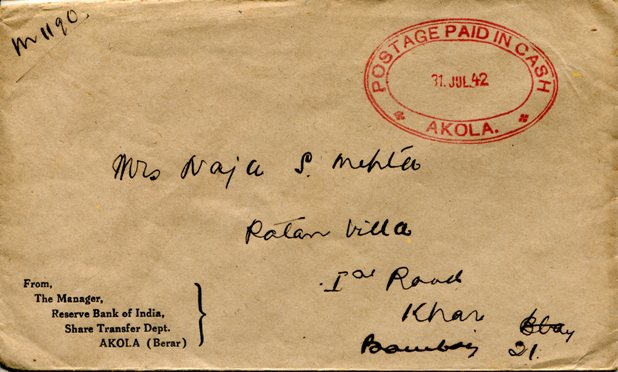 M 1190.
POSTAGE PAID IN CASH
31. JUL. 42
AKOLA.
Mrs Naja S. Mehta
Ratan Villa
Road
Khar Bbay
Bombay 21.
From,
The Manager,
Reserve Bank of India,
Share Transfer Dept.
AKOLA (Berar)